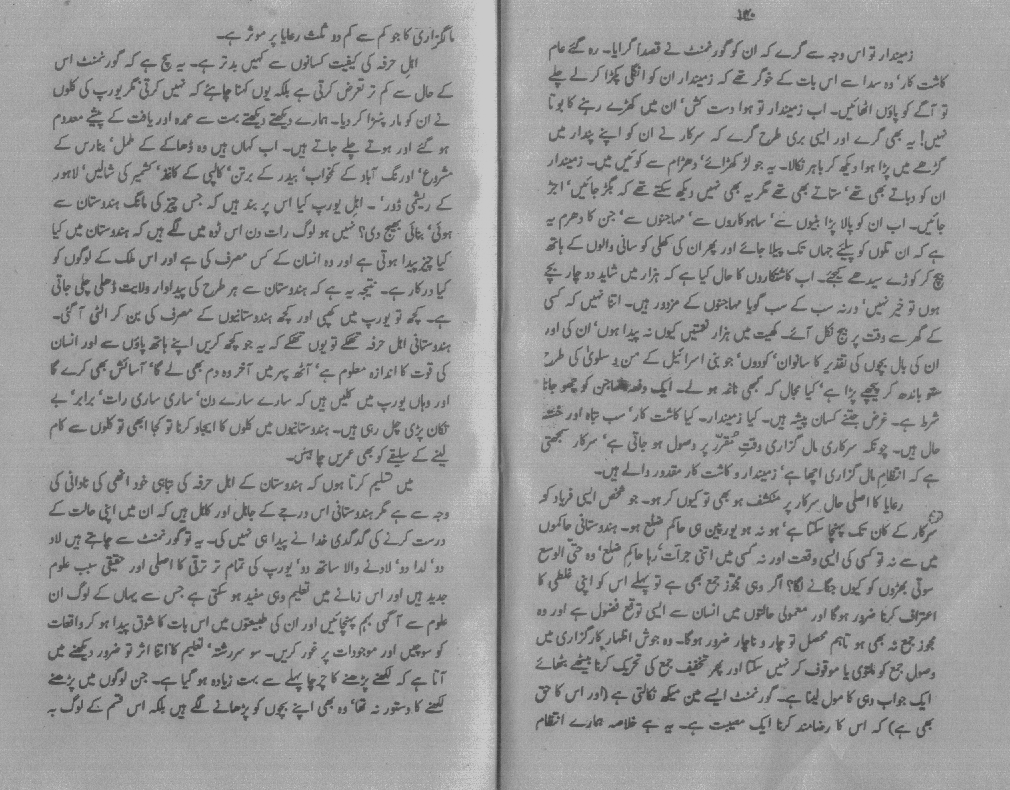 ۱۴۰
زمیندار تو اس وجہ سے گرے کہ ان کو گورنمنٹ نے قصداً گرایا۔ رہ گئے عام
کاشت کار' وہ سدا سے اس بات کے خوگر تھے کہ زمیندار ان کو انگلی پکڑا کر لے چلے
تو آگے کو پاؤں اٹھائیں۔ اب زمیندار تو ہوا دست کش' ان میں کھڑے رہنے کا بوتا
نہیں! یہ بھی گرے اور ایسی بری طرح گرے کہ سرکار نے ان کو اپنے پندار میں
گڑھے میں پڑا ہوا دیکھ کر باہر نکالا۔ یہ جو لڑکھڑائے' دھڑام سے کوئیں میں۔ زمیندار
ان کو دباتے بھی تھے' ستاتے بھی تھے مگر یہ بھی نہیں دیکھ سکتے تھے کہ بگڑ جائیں' اجڑ
جائیں۔ اب ان کو پالا پڑا بنیوں سے' ساہوکاروں سے' مہاجنوں سے' جن کا دھرم یہ
ہے کہ ان تلوں کو پیلیے جہاں تک پیلا جائے اور پھر ان کی کھلی کو سانی والوں کے ہاتھ
بیچ کر کوڑے سیدھے کیجئے۔ اب کاشتکاروں کا حال کیا ہے کہ ہزار میں شاید دو چار بچے
ہوں تو خیر نہیں' ورنہ سب کے سب گویا مہاجنوں کے مزدور ہیں۔ اتنا نہیں کہ کسی
کے گھر سے وقت پر بیج نکل آئے۔ کھیت میں ہزار نعمتیں کیوں نہ پیدا ہوں' ان کی اور
ان کی بال بچوں کی تقدیر کا سانواں' کودوں' جو بنی اسرائیل کے من و سلویٰ کی طرح
ستو باندھ کر پیچھے پڑا ہے' کیا مجال کہ کبھی ناغہ ہولے۔ ایک دفعہ مہاجن کو چھو جانا
شرط ہے۔ غرض جتنے کسان پیشہ ہیں۔ کیا زمیندار۔ کیا کاشت کار' سب تباہ اور خستہ
حال ہیں۔ چونکہ سرکاری مال گزاری وقتِ مُقرّر پر وصول ہو جاتی ہے' سرکار سمجھتی
ہے کہ انتظامِ مال گزاری اچھا ہے' زمیندار و کاشت کار مقدور والے ہیں۔
رعایا کا اصلی حال سرکار پر منکشف ہو بھی تو کیوں کر ہو۔ جو شخص ایسی فریاد کو
سرکار کے کان تک پہنچا سکتا ہے' ہو نہ ہو یورپین ہی حاکم ضلع ہو۔ ہندوستانی حاکموں
میں سے نہ تو کسی کی ایسی وقعت اور نہ کسی میں اتنی جرأت' رہا حاکم ضلع' وہ حتی الوسع
سوتی بھڑوں کو کیوں جگانے لگا؟ اگر وہی مجوّز جمع بھی ہے تو پہلے اس کو اپنی غلطی کا
اعتراف کرنا ضرور ہوگا اور معمولی حالتوں میں انسان سے ایسی توقع فضول ہے اور وہ
مجوز جمع نہ بھی ہو تاہم محصل تو چار و ناچار ضرور ہوگا۔ وہ جوش اظہار کارگزاری میں
وصول جمع کو ملتوی یا موقوف کر نہیں سکتا اور پھر تخفیف جمع کی تحریک کرنا بیٹھے بٹھائے
ایک جواب دہی کا مول لینا ہے۔ گورنمنٹ ایسے مین میکھ نکالتی ہے (اور اس کا حق
بھی ہے) کہ اس کا رضامند کرنا ایک مصیبت ہے۔ یہ ہے خلاصہ ہمارے انتظام
مالگزاری کا جو کم سے کم دو ثلث رعایا پر موثر ہے۔
اہل حرفہ کی کیفیت کسانوں سے کہیں بدتر ہے۔ یہ سچ ہے کہ گورنمنٹ اس
کے حال سے کم تر تعرض کرتی ہے بلکہ یوں کہنا چاہئے کہ نہیں کرتی مگر یورپ کی کلوں
نے ان کو مار پٹڑا کر دیا۔ ہمارے دیکھتے دیکھتے بہت سے عمدہ اور یافت کے پیشے معدوم
ہو گئے اور ہوتے چلے جاتے ہیں۔ اب کہاں ہیں وہ ڈھاکے کے ململ' بنارس کے
مشروع' اورنگ آباد کے کمخواب' بیدر کے برتن' کالپی کے کاغذ' کشمیر کی شالیں' لاہور
کے ریشمی ڈور'۔ اہل یورپ کیا اس پر بند ہیں کہ جس چیز کی مانگ ہندوستان سے
ہوئی' بنائی بھیج دی؟ نہیں ہو لوگ رات دن اس ٹوہ میں لگے ہیں کہ ہندوستان میں کیا
کیا چیز پیدا ہوتی ہے اور وہ انسان کے کس مصرف کی ہے اور اس ملک کے لوگوں کو
کیا درکار ہے۔ نتیجہ یہ ہے کہ ہندوستان سے ہر طرح کی پیداوار ولایت ڈھلی چلی جاتی
ہے۔ کچھ تو یورپ میں کھپی اور کچھ ہندوستانیوں کے مصرف کی بن کر الٹی آ گئی۔
ہندوستانی اہل حرفہ تھکے تو یوں تھکے کہ یہ جو کچھ کریں اپنے ہاتھ پاؤں سے اور انسان
کی قوت کا اندازہ معلوم ہے' آٹھ پہر میں آخر وہ دم بھی لے گا' آسائش بھی کرے گا
اور وہاں یورپ میں کلیں ہیں کہ سارے سارے دن' ساری ساری رات' برابر' بے
تکان پڑی چل رہی ہیں۔ ہندوستانیوں میں کلوں کا ایجاد کرنا تو کجا ابھی تو کلوں سے کام
لینے کے سلیقے کو بھی عمریں چاہئیں۔
میں تسلیم کرتا ہوں کہ ہندوستان کے اہل حرفہ کی تباہی خود انھی کی نادانی کی
وجہ سے ہے مگر ہندوستانی اس درجے کے جاہل اور کاہل ہیں کہ ان میں اپنی حالت کے
درست کرنے کی گدگدی خدا نے پیدا ہی نہیں کی۔ یہ تو گورنمنٹ سے چاہتے ہیں لاد
دو' لدا دو' لادنے والا ساتھ دو' یورپ کی تمام تر ترقی کا اصلی اور حقیقی سبب علوم
جدید ہیں اور اس زمانے میں تعلیم وہی مفید ہو سکتی ہے جس سے یہاں کے لوگ ان
علوم سے آگہی بہم پہنچائیں اور ان کی طبیعتوں میں اس بات کا شوق پیدا ہو کر واقعات
کو سوچیں اور موجودات پر غور کریں۔ سو سررشتہ' تعلیم کا اتنا اثر تو ضرور دیکھنے میں
آتا ہے کہ لکھنے پڑھنے کا چرچا پہلے سے بہت زیادہ ہو گیا ہے۔ جن لوگوں میں پڑھنے
لکھنے کا دستور نہ تھا' وہ بھی اپنے بچوں کو پڑھانے لگے ہیں بلکہ اس قسم کے لوگ بہ